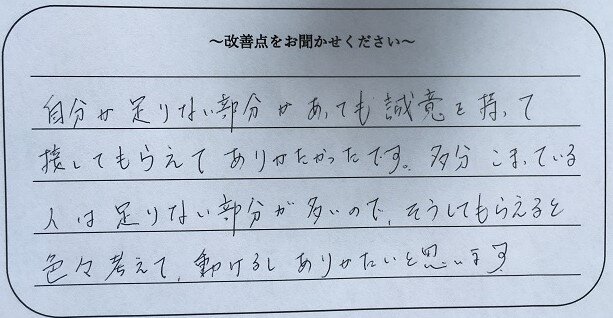 ～改善点をお聞かせください～
自分が足りない部分があっても誠意を持って
接してもらえてありがたかったです。多分こまっている
人は足りない部分が多いので、そうしてもらえると
色々考えて、動けるしありがたいと思います